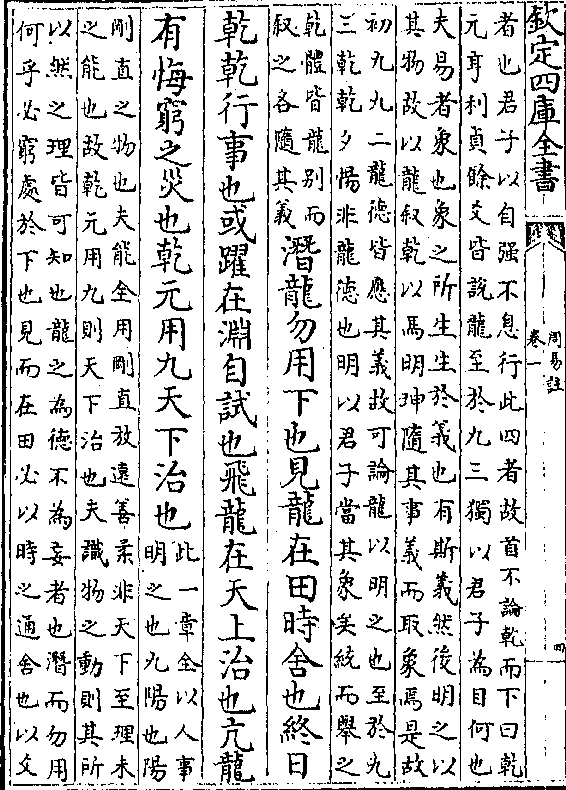 欽定四庫全書
周易註
卷一
四
者也君子以自强不息行此四者故首不論乾而下曰乾
元亨利貞餘爻皆說龍至於九三獨以君子為目何也
夫易者象也象之所生生於義也有斯義然後明之以
其物故以龍叙乾以馬明坤隨其事義而取象焉是故
初九九二龍德皆應其義故可論龍以明之也至於九
三乾乾夕惕非龍德也明以君子當其象矣統而舉之
乾體皆龍別而
叙之各隨其義
潛龍勿用下也見龍在田時舍也終日
乾乾行事也或躍在淵自試也飛龍在天上治也亢龍
有悔窮之災也乾元用九天下治也
此一章全以人事
明之也九陽也陽
剛直之物也夫能全用剛直放遠善柔非天下至理未
之能也故乾元用九則天下治也夫識物之動則其所
以然之理皆可知也龍之為德不為妄者也潛而勿用
何乎必窮處於下也見而在田必以時之通舍也以爻